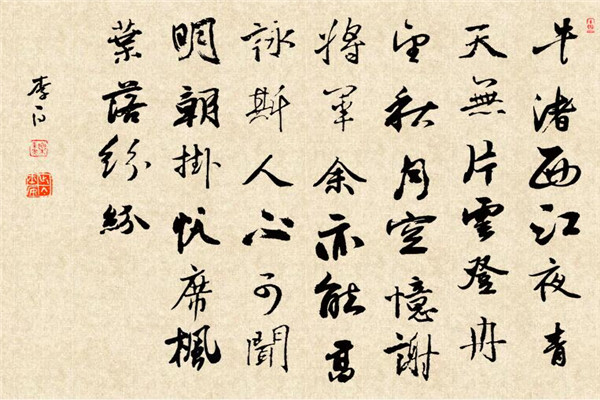 牛渚西江夜青
天無片雲登舟
望秋月空憶謝
將軍余亦能高
詠斯人不可聞
明朝掛帆席楓
葉落紛紛
李白